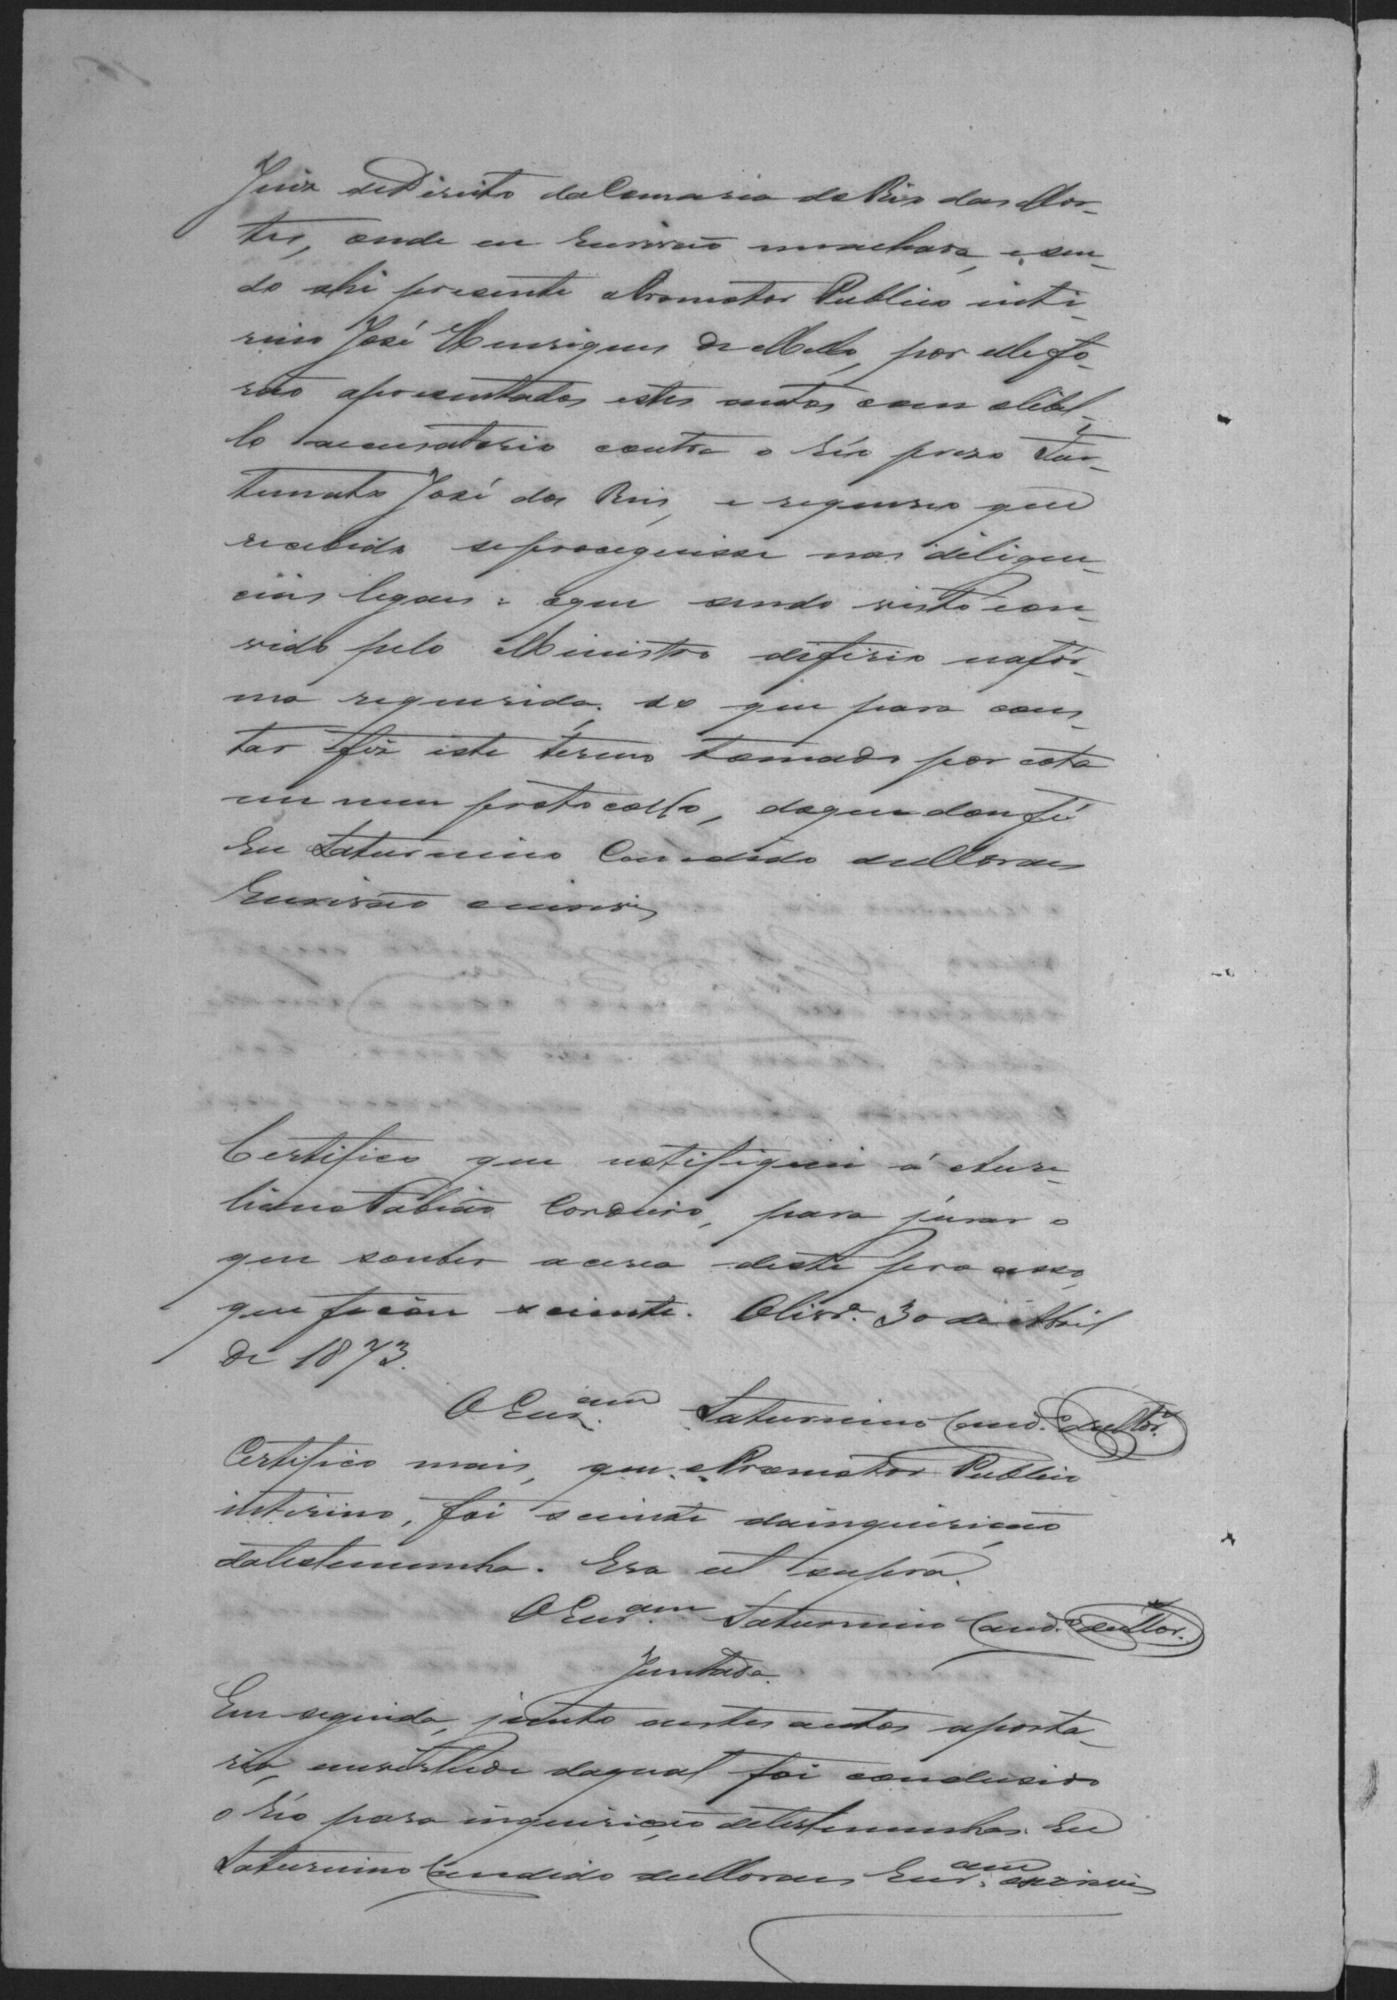 Juiz de Direito da Comarca do Rio das Mor-
tes, onde eu Escrivão me achava, e sen-
do ahi presente o Promotor Publico inte-
rino José Henriques de Mello, por elle fo-
rão apresentados estes autos com o libel-
lo accusatorio contra o réo prezo For-
tunato José dos Reis, e requereo que
recebido se proseguisse nas deligen-
cias legaes: o que sendo visto e ou-
vido pelo Ministro deferio na fór-
ma requerida. do que para cons-
tar fiz este termo tomado por cóta
em meu protocollo, do que dou fé
Eu Saturnino Candido de Moraes
Escrivão escrevi
Certifico que notifiquei á Aure-
liano Fabião Cordeiro, para jurar o
que souber acerca deste processo,
que ficou sciente. Olivr.ª 30 de Abril
de 1873.
O Escr.am Saturnino Cand.º de Mor.
Certifico mais, que o Promotor Publico
interino, foi sciente da inquirição
da testemunha. Era ut supra.
O Escr.am Saturnino Cand.º de Mor.
Juntada.
Em seguida, junto a estes autos a porta-
ria, em virtude da qual foi condusido
o réo para inquirição de testemunhas. Eu
Saturnino Candido de Moraes Escr.am escrevi